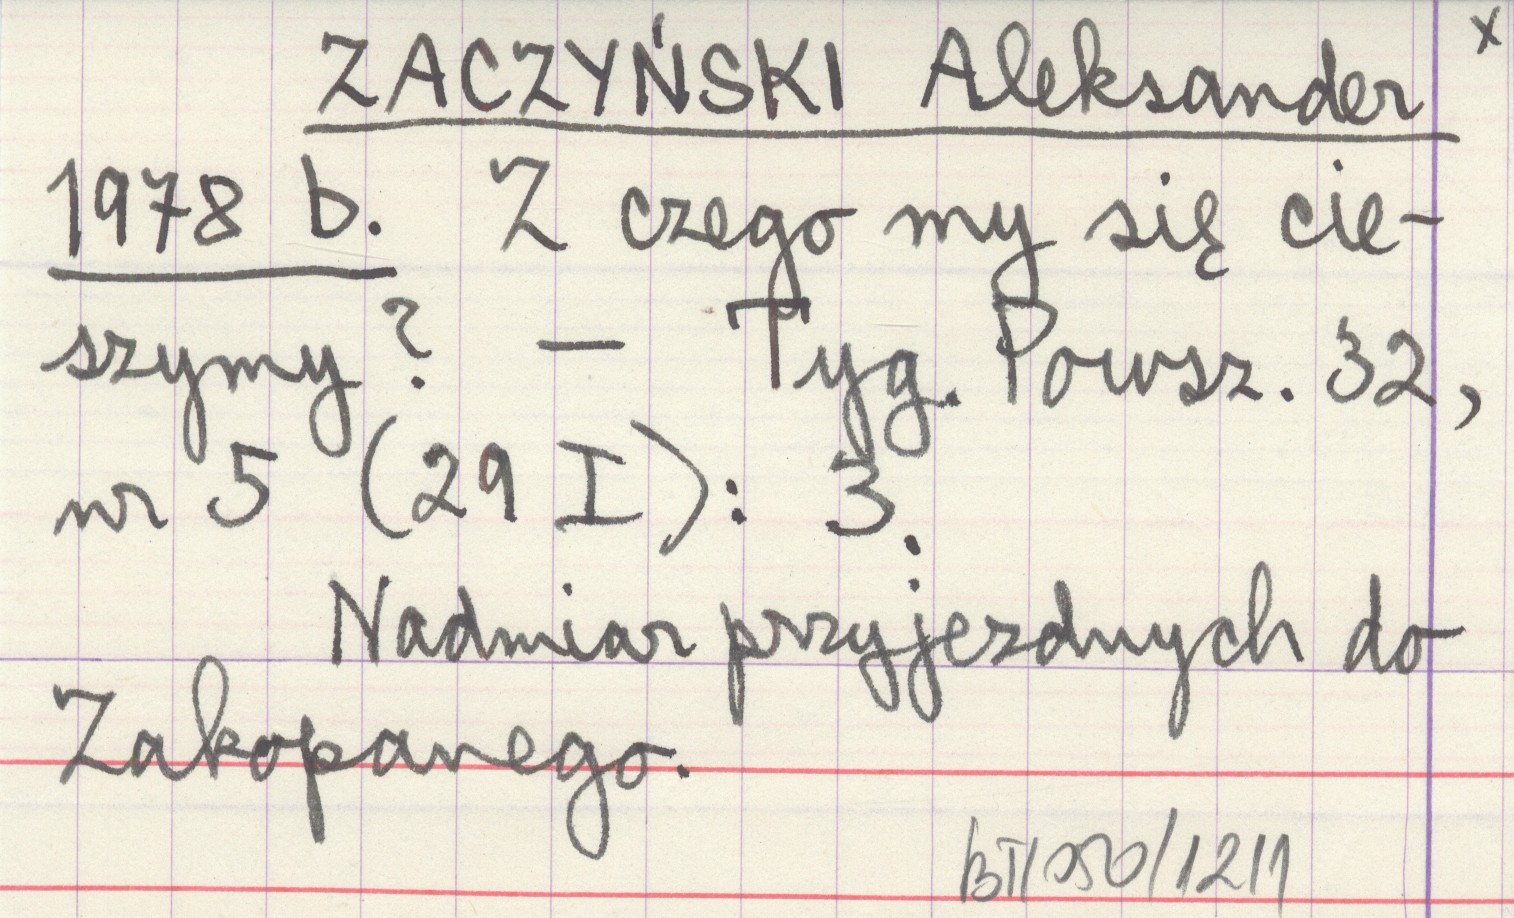 x
ZACZYŃSKI Aleksander
1978 b. Z czego my się cie-
szymy? — Tyg. Powsz. 32,
nr 5 (29 I): 3.
Nadmiar przyjezdnych do
Zakopanego.
BT/050/1211